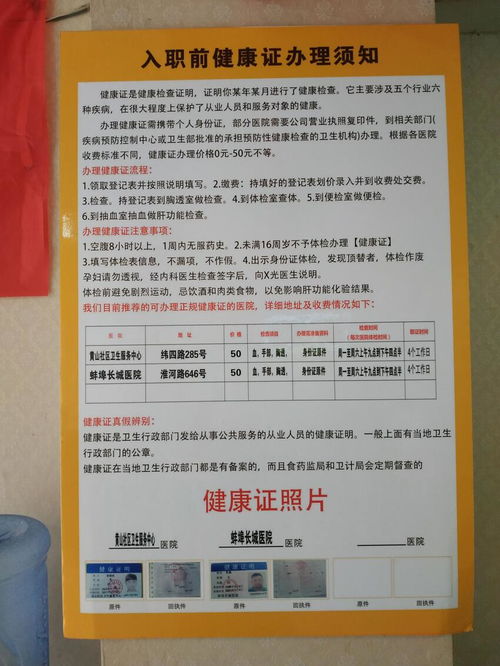 入职前健康证办理须知
健康证是健康检查证明，证明你某年某月进行了健康检查。它主要涉及五个行业六
种疾病，在很大程度上保护了从业人员和服务对象的健康。
办理健康证需携带个人身份证，部分医院需要公司营业执照复印件，到相关部门(
疾病预防控制中心或卫生部批准的承担预防性健康检查的卫生机构)办理。根据各医院
收费标准不同，健康证办理价格0元-50元不等。
办理健康证流程：
1.领取登记表并按照说明填写。2.缴费：持填好的登记表划价录入并到收费处交费。
3.检查。持登记表到胸透室做检查。4.到体检室查体。5.到便检室做便检。
6.到抽血室抽血做肝功能检查。
办理健康证注意事项：
1.空腹8小时以上，1周内无服药史。2.未满16周岁不予体检办理【健康证】
3.填写体检表信息，不漏项，不作假。4.出示身份证体检，发现顶替者，体检作废
孕妇请勿透视，经内科医生检查签字后，向X光医生说明。
体检前避免剧烈运动，忌饮酒和肉类食物，以免影响肝功能化验结果。
我们目前推荐的可办理正规健康证的医院，详细地址及收费情况如下：
医 院 地址 价 格 检查项目 办理需准备资料 检查时间 （每次医院体检时间） 取证时间
黄山社区卫生服务中心 纬四路285号 50 血，手部，胸透， 身份证原件 周一至周六上午九点到下午四点半 4个工作日
蚌埠长城医院 淮河路646号 50 血，手部，胸透， 身份证原件 周一至周六上午九点到下午四点半 4个工作日
健康证真假辨别：
健康证是卫生行政部门发给从事公共服务的从业人员的健康证明。一般上面有当地卫生
行政部门的公章。
健康证在当地卫生行政部门都是有备案的，而且食药监局和卫计局会定期督查的
健康证照片
黄山社区卫生服务中心 医院 蚌埠长城医院 医院 医院
健康证明 健康证明
原件 回执件 原件 回执件 原件 回执件